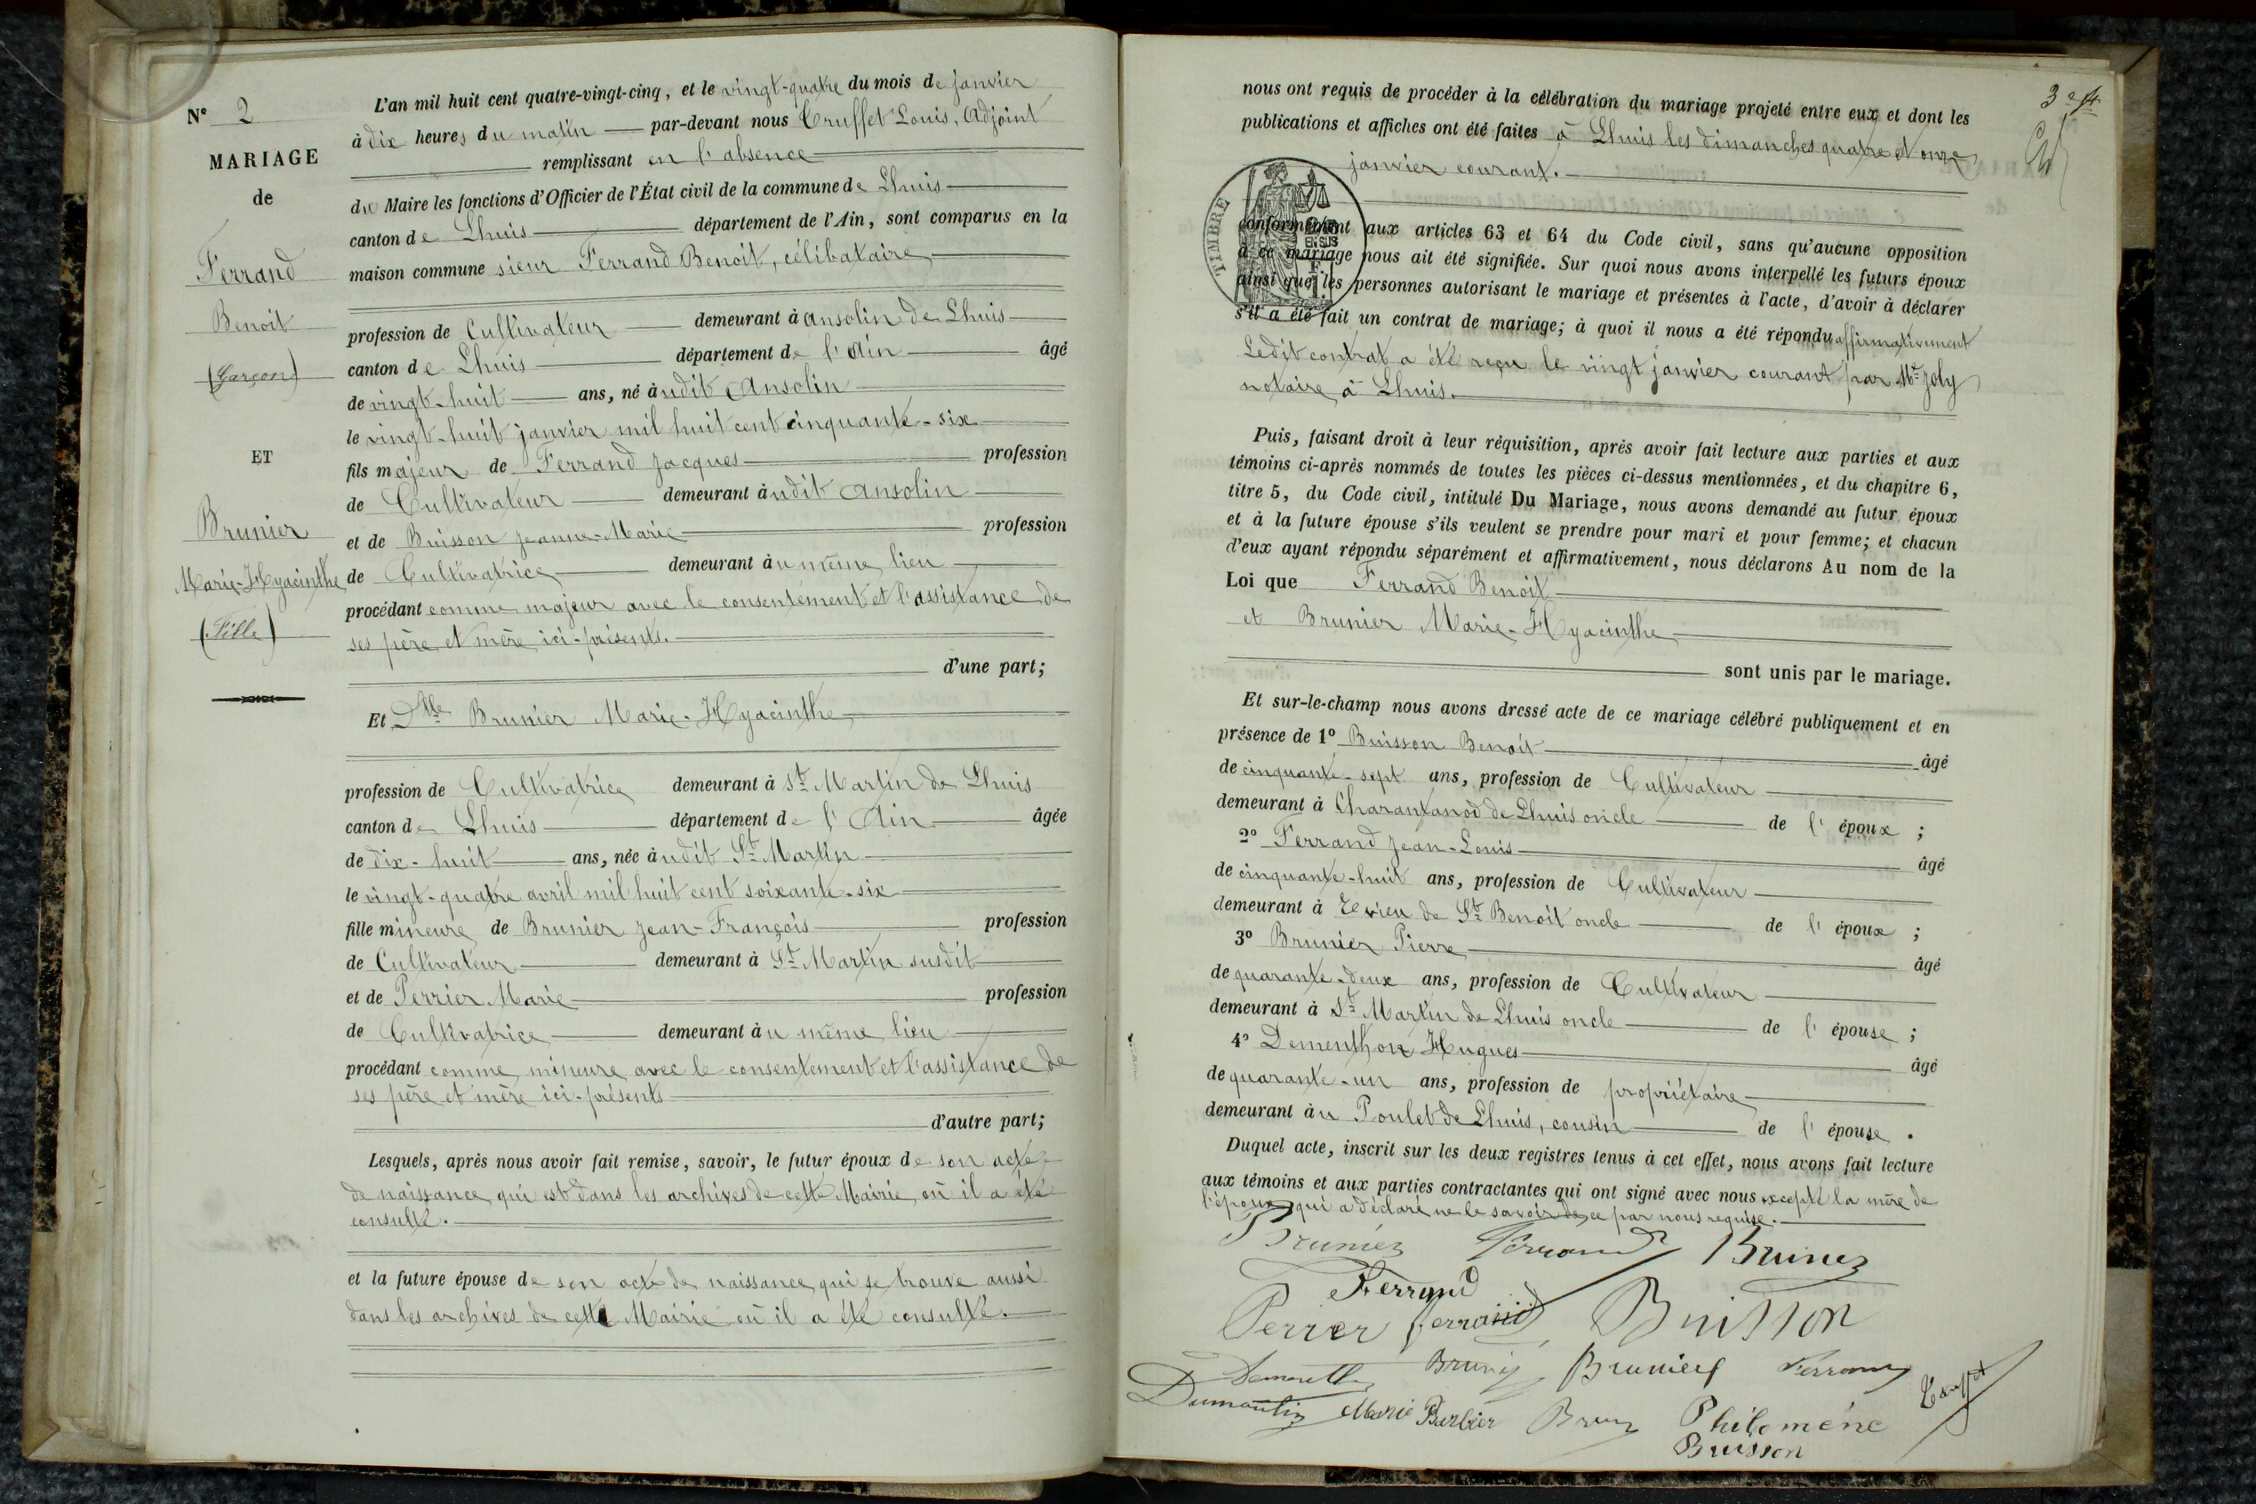 N° 2
MARIAGE
de
Ferrand
Benoit
(Garçon)
ET
Brunier
Marie-Hyacinthe
(Fille)
L'an mil huit cent quatre-vingt-cinq, et le vingt-quatre du mois de janvier
à dix heures du matin par-devant nous Truffet Louis, Adjoint
remplissant en l'absence
du Maire les fonctions d'Officier de l'État civil de la commune de Lhuis
canton de Lhuis département de l'Ain, sont comparus en la
maison commune sieur Ferrand Benoit, célibataire
profession de Cultivateur demeurant à Ansolin de Lhuis
canton de Lhuis département de l'Ain âgé
de vingt-huit ans, né àudit Ansolin
le vingt-huit janvier mil huit cent cinquante-six
fils majeur de Ferrand Jacques profession
de Cultivateur demeurant àudit Ansolin
et de Buisson Jeanne-Marie profession
de Cultivatrice demeurant àu même lieu
procédant comme majeur avec le consentement et l'assistance de
ses père et mère ici-présents.
d'une part;
Et Dlle Brunier Marie-Hyacinthe
profession de Cultivatrice demeurant à St Martin de Lhuis
canton de Lhuis département de l'Ain âgée
de dix-huit ans, née àudit St Martin
le vingt-quatre avril mil huit cent soixante-six
fille mineure de Brunier Jean-François profession
de Cultivateur demeurant à St Martin susdit
et de Perrier Marie profession
de Cultivatrice demeurant àu même lieu
procédant comme mineure avec le consentement et l'assistance de
ses père et mère ici-présents
d'autre part;
Lesquels, après nous avoir fait remise, savoir, le futur époux de son acte
de naissance qui est dans les archives de cette Mairie où il a été
consulté.
et la future épouse de son acte de naissance qui se trouve aussi
dans les archives de cette Mairie où il a été consulté.
3e f
nous ont requis de procéder à la célébration du mariage projeté entre eux et dont les
publications et affiches ont été faites à Lhuis les dimanches quatre et onze
janvier courant.
TIMBRE
2/10 EN SUS
conformément aux articles 63 et 64 du Code civil, sans qu'aucune opposition
à ce mariage nous ait été signifiée. Sur quoi nous avons interpellé les futurs époux
ainsi que les personnes autorisant le mariage et présentes à l'acte, d'avoir à déclarer
s'il a été fait un contrat de mariage; à quoi il nous a été répondu affirmativement
Ledit contrat a été reçu le vingt janvier courant par Me Joly
notaire à Lhuis.
Puis, faisant droit à leur réquisition, après avoir fait lecture aux parties et aux
témoins ci-après nommés de toutes les pièces ci-dessus mentionnées, et du chapitre 6,
titre 5, du Code civil, intitulé Du Mariage, nous avons demandé au futur époux
et à la future épouse s'ils veulent se prendre pour mari et pour femme; et chacun
d'eux ayant répondu séparément et affirmativement, nous déclarons Au nom de la
Loi que Ferrand Benoit
et Brunier Marie-Hyacinthe
sont unis par le mariage.
Et sur-le-champ nous avons dressé acte de ce mariage célébré publiquement et en
présence de 1° Buisson Benoit âgé
de cinquante-sept ans, profession de Cultivateur
demeurant à Charantanod de Lhuis oncle de l'époux;
2° Ferrand Jean-Louis âgé
de cinquante-huit ans, profession de Cultivateur
demeurant à de St Benoit oncle de l'époux;
3° Brunier Pierre âgé
de quarante-deux ans, profession de Cultivateur
demeurant à St Martin de Lhuis oncle de l'épouse;
4° Dementhon Hugues âgé
de quarante-un ans, profession de propriétaire
demeurant àu Poulet de Lhuis, cousin de l'épouse.
Duquel acte, inscrit sur les deux registres tenus à cet effet, nous avons fait lecture
aux témoins et aux parties contractantes qui ont signé avec nous excepté la mère de
l'époux qui a déclaré ne le savoir de ce par nous requise.
Brunier Ferrand Brunier
Ferrand
Perrier Ferrand Buisson
Brunier Ferrand
Dumoulin Marie Barbier Philomène
Buisson
Truffet